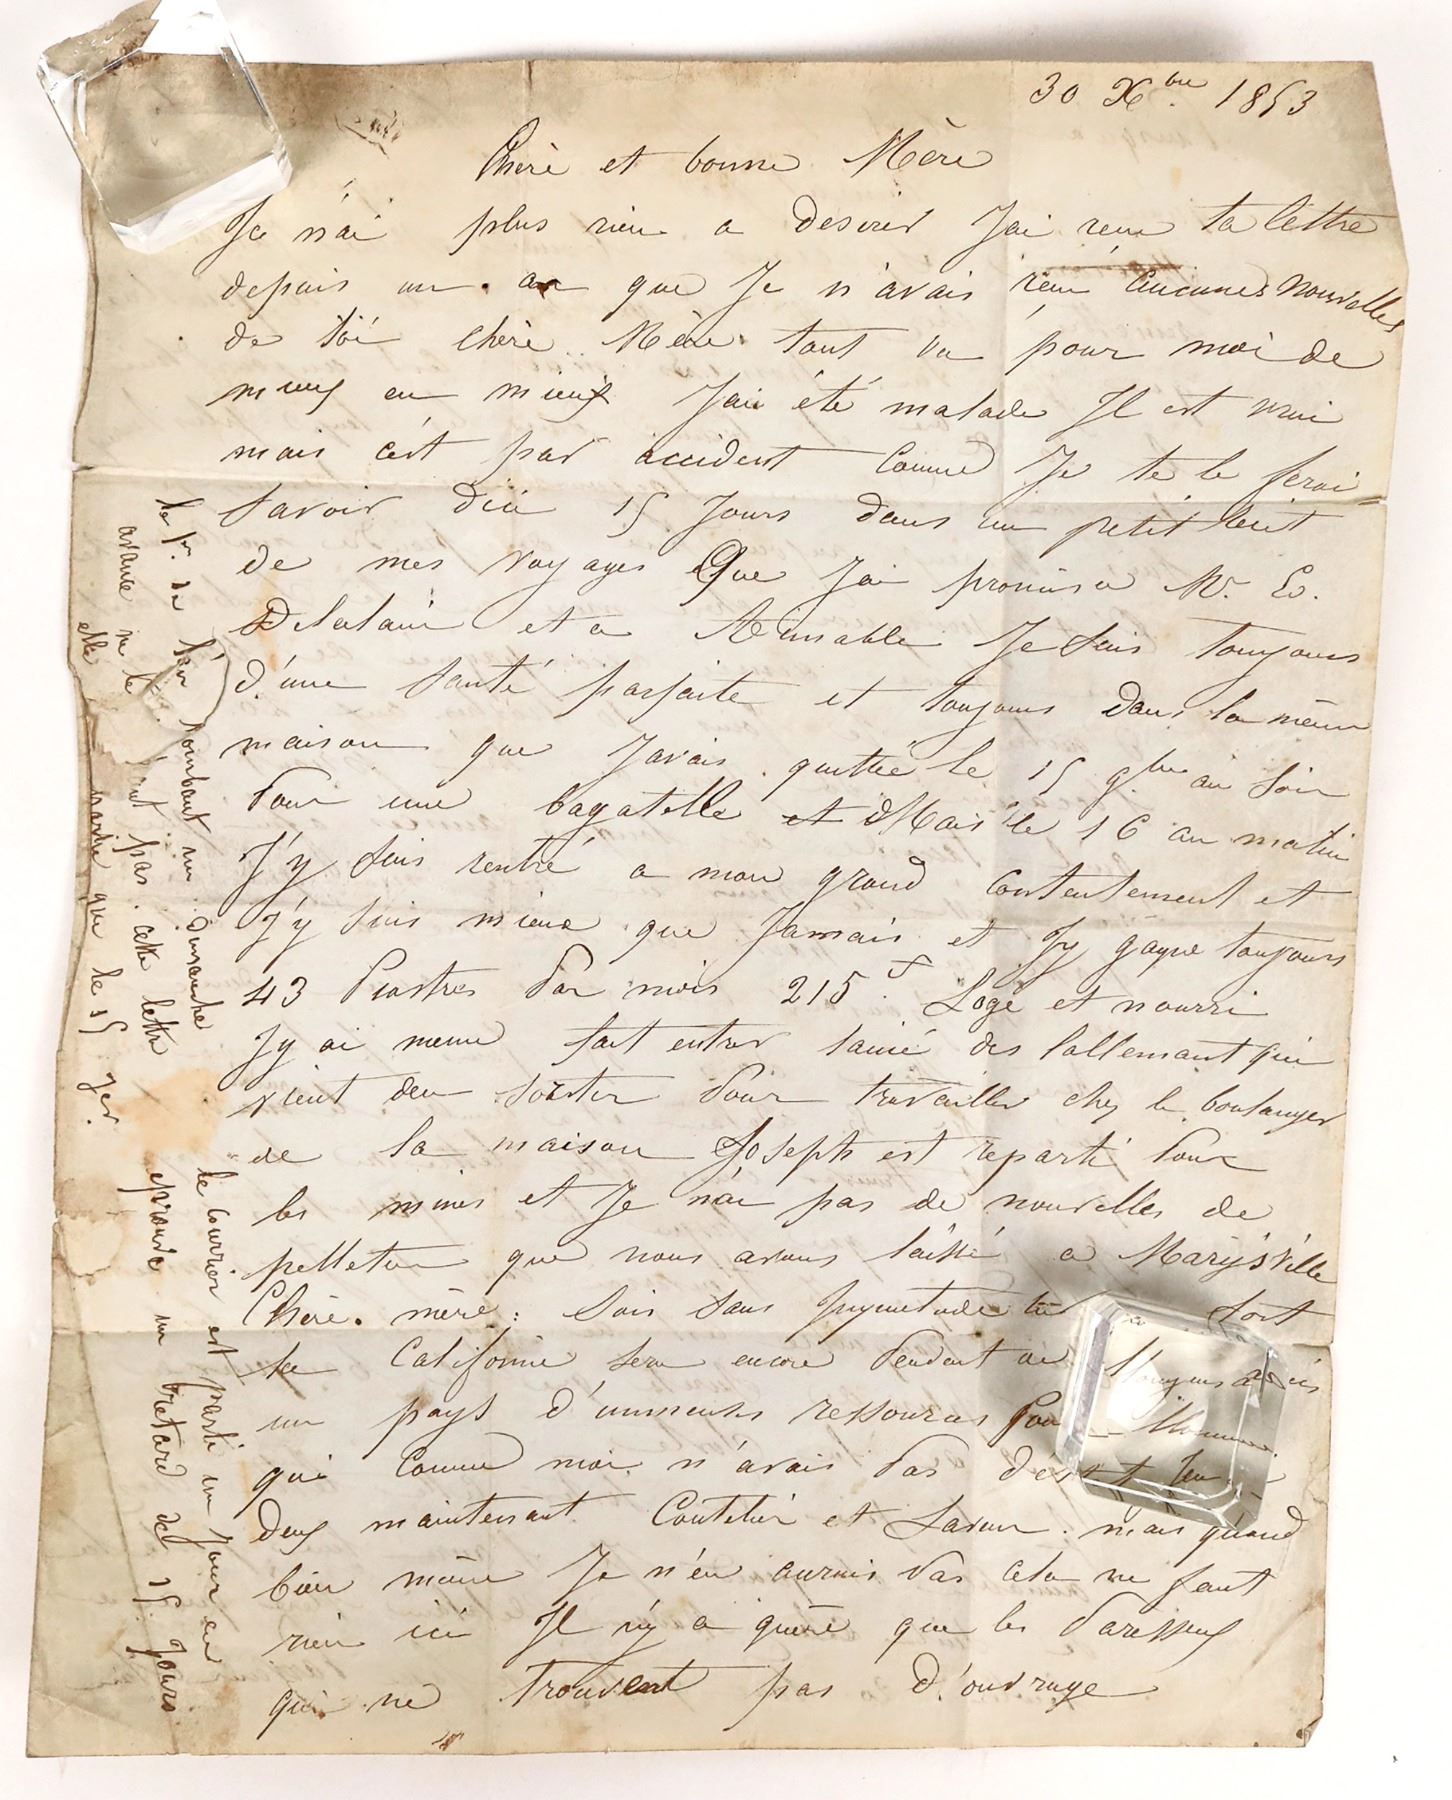 30 Xbre 1853
Chère et bonne Mère
Je n'ai plus rien a desirer J'ai recu ta lettre
depuis un an que Je n'avais recu aucunes nouvelles
de toi chère Mère tout va pour moi de
mieux en mieux J'ai été malade Il est vrai
mais c'est par accident comme Je te le ferai
savoir d'ici 15 Jours dans un petit recit
de mes voyages Que J'ai promis a Mr. E.
Delalain et a Aimable Je suis toujours
d'une santé parfaite et toujours dans la même
maison que J'avais quittée le 15 9bre au soir
Pour une bagatelle et Mais le 16 au matin
J'y suis rentré a mon grand contentement et
J'y suis mieux que Jamais et J'y gagne toujours
43 Piastres Par mois 215 f. Logé et nourri
J'y ai meme fait entrer lainé des lallemant qui
vient den sortir Pour travailler chez le boulanger
de la maison Joseph est reparti Pour
les mines et Je n'ai pas de nouvelles de
pelletier que nous avons laissé a Marysville
Chère mère: Sois sans Inquietude sort
la Californie sera encore Pendant
un pays d'immenses ressources Pour
qui comme moi n'avais Pas
Deux maintenant Coutelier et mais quand
bien même Je n'en aurais Pas cela ne fait
rien ici Il n'y a guère que les Paresseux
qui ne trouvent pas d'ouvrage
le 1er de l'an tombant un dimanche le courrier est parti un Jour en
avance ne pas cette lettre eprouve un retard de 15 Jours
elle partir que le 15 Jer.